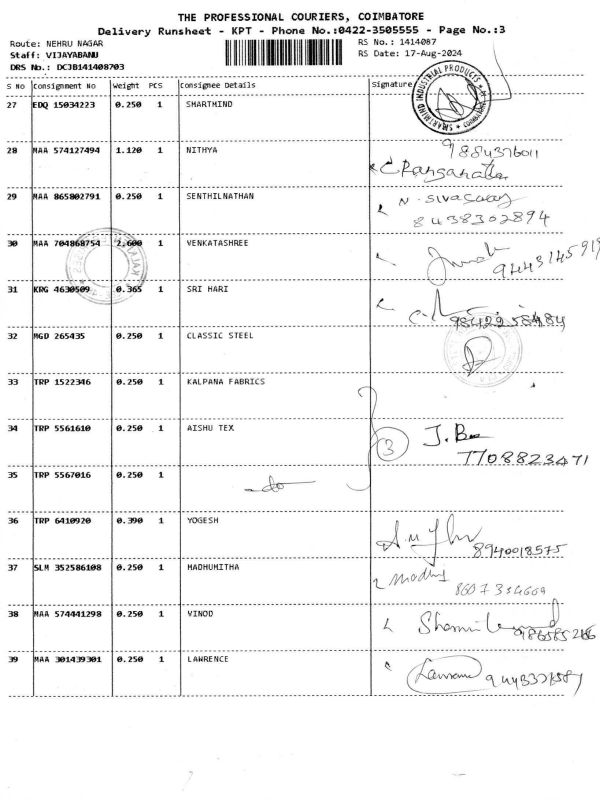 THE PROFESSIONAL COURIERS, COIMBATORE
Delivery Runsheet - KPT - Phone No.:0422-3505555 - Page No.:3
Route: NEHRU NAGAR
RS No.: 1414087
Staff: VIJAYABANU
RS Date: 17-Aug-2024
DRS No.: DCJB141408703
S No Consignment No Weight PCS Consignee Details Signature
27 EDQ 15034223 0.250 1 SHARTMIND
28 MAA 574127494 1.120 1 NITHYA 9884376011
C Ranganathan
29 MAA 865802791 0.250 1 SENTHILNATHAN N. Sivasamy
8438302894
30 MAA 704868754 2.600 1 VENKATASHREE
9443145919
31 KRG 4630509 0.365 1 SRI HARI
9842258484
32 MGD 265435 0.250 1 CLASSIC STEEL
33 TRP 1522346 0.250 1 KALPANA FABRICS
34 TRP 5561610 0.250 1 AISHU TEX 3 J.B
7708823471
35 TRP 5567016 0.250 1 do
36 TRP 6410920 0.390 1 YOGESH
8940018575
37 SLM 352586108 0.250 1 MADHUMITHA Madhu
8607334669
38 MAA 574441298 0.250 1 VINOD
39 MAA 301439301 0.250 1 LAWRENCE